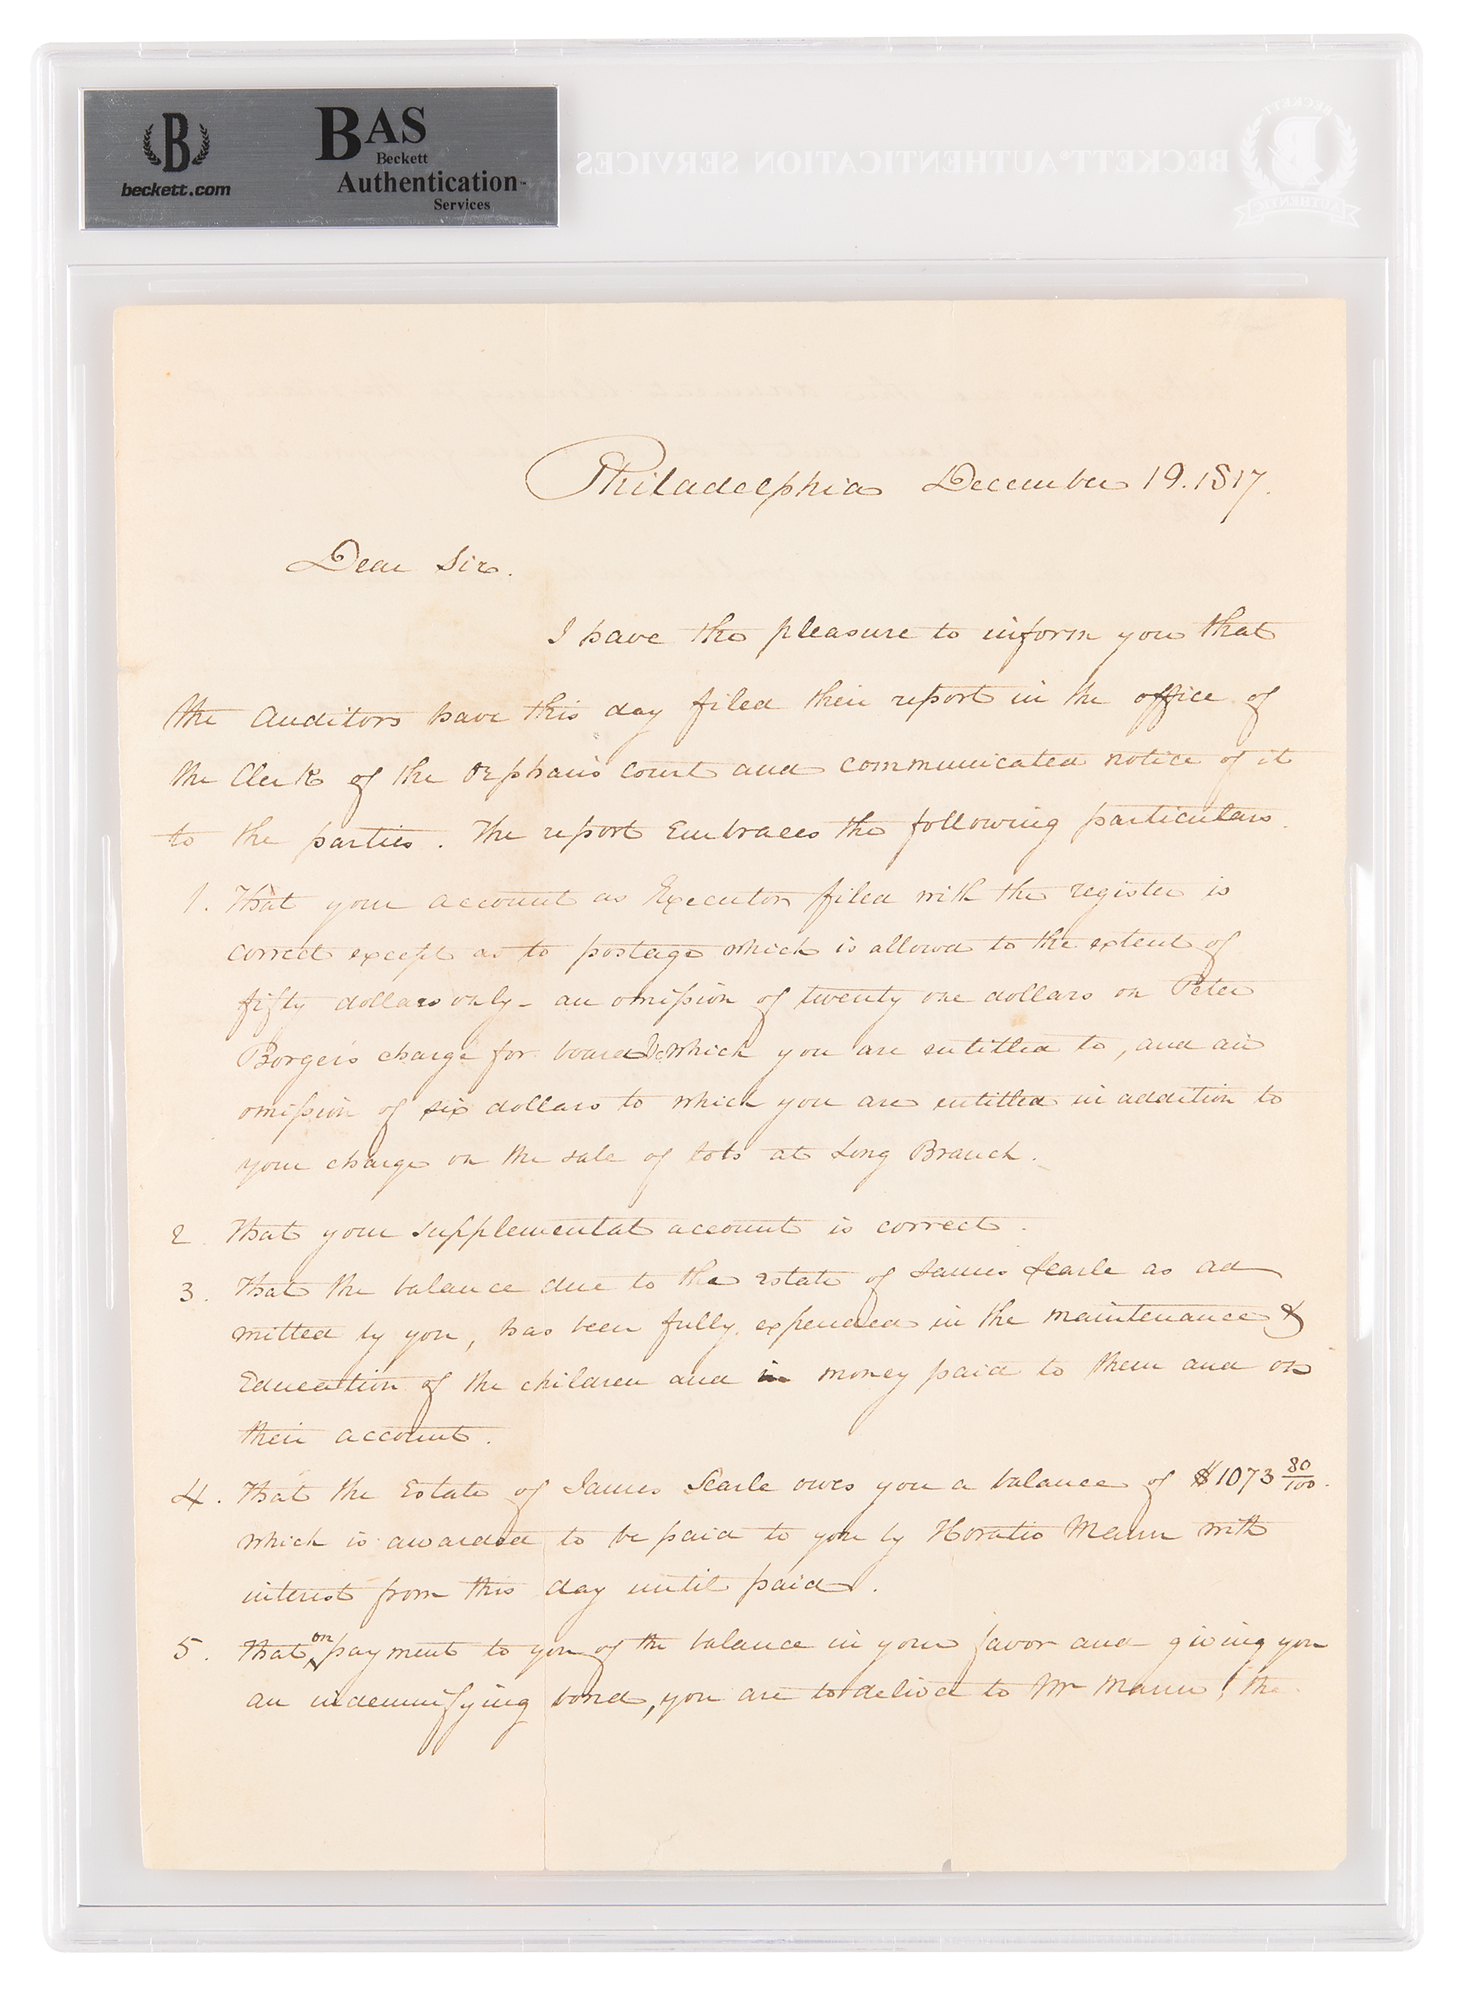 beckett.com
BAS
Beckett
Authentication
Services
BECKETT AUTHENTICATION SERVICES
BECKETT
AUTHENTIC
Philadelphia December 19. 1817.
Dear Sir.
I have the pleasure to inform you that
the Auditors have this day filed their report in the office of
the Clerk of the Orphan's Court and communicated notice of it
to the parties. The report Embraces the following particulars.
1. That your account as Executor filed with the register is
correct except as to postage which is allowed to the extent of
fifty dollars only - an omission of twenty one dollars on Peter
Borger's charge for board &c which you are entitled to, and an
omission of six dollars to which you are entitled in addition to
your charge on the sale of lots at Long Branch.
2. That your supplemental account is correct.
3. That the balance due to the estate of James Searle as ad
mitted by you, has been fully expended in the maintenance &
Education of the children and in money paid to them and on
their account.
4. That the Estate of James Searle owes you a balance of $1073 80/100.
which is awarded to be paid to you by Horatio Mann with
interest from this day until paid.
5. That on payment to you of the balance in your favor and giving you
an indemnifying bond, you are to deliver to Mr Mann, the